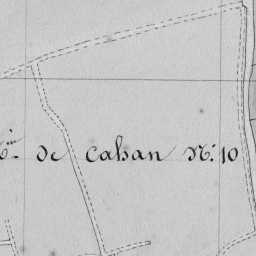 de Cahan N.° 10